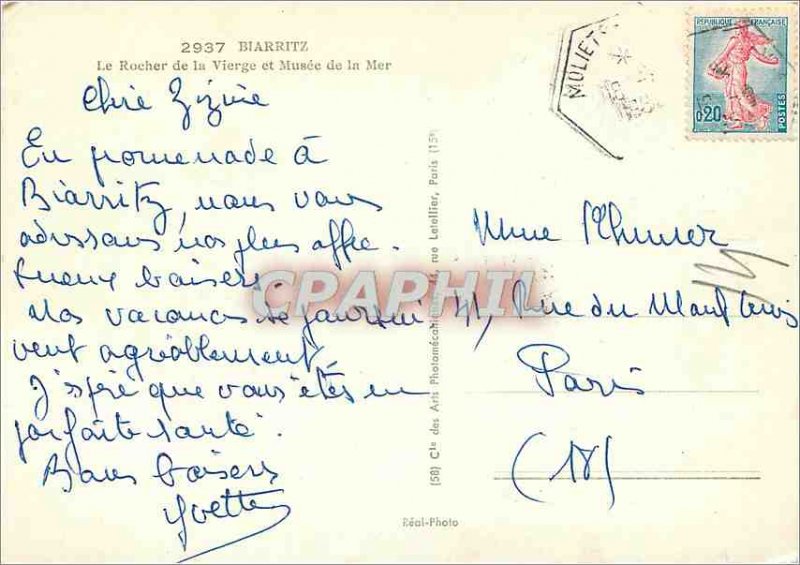 2937 BIARRITZ
Le Rocher de la Vierge et Musée de la Mer
Chère Zizine
En promenade à
Biarritz, nous vous
adressons nos plus affec-
tueux baisers
Nos vacances se poursui
vent agréablement
J'espère que vous êtes en
parfaite santé.
Bons baisers
Yvette
(58) Cie des Arts Photomécaniques, rue Letellier, Paris (15e)
Réal-Photo
MOLIETS
REPUBLIQUE FRANÇAISE
0,20
POSTES
Mme
Rue du Mont Cenis
Paris
(18)
CPARPHIL